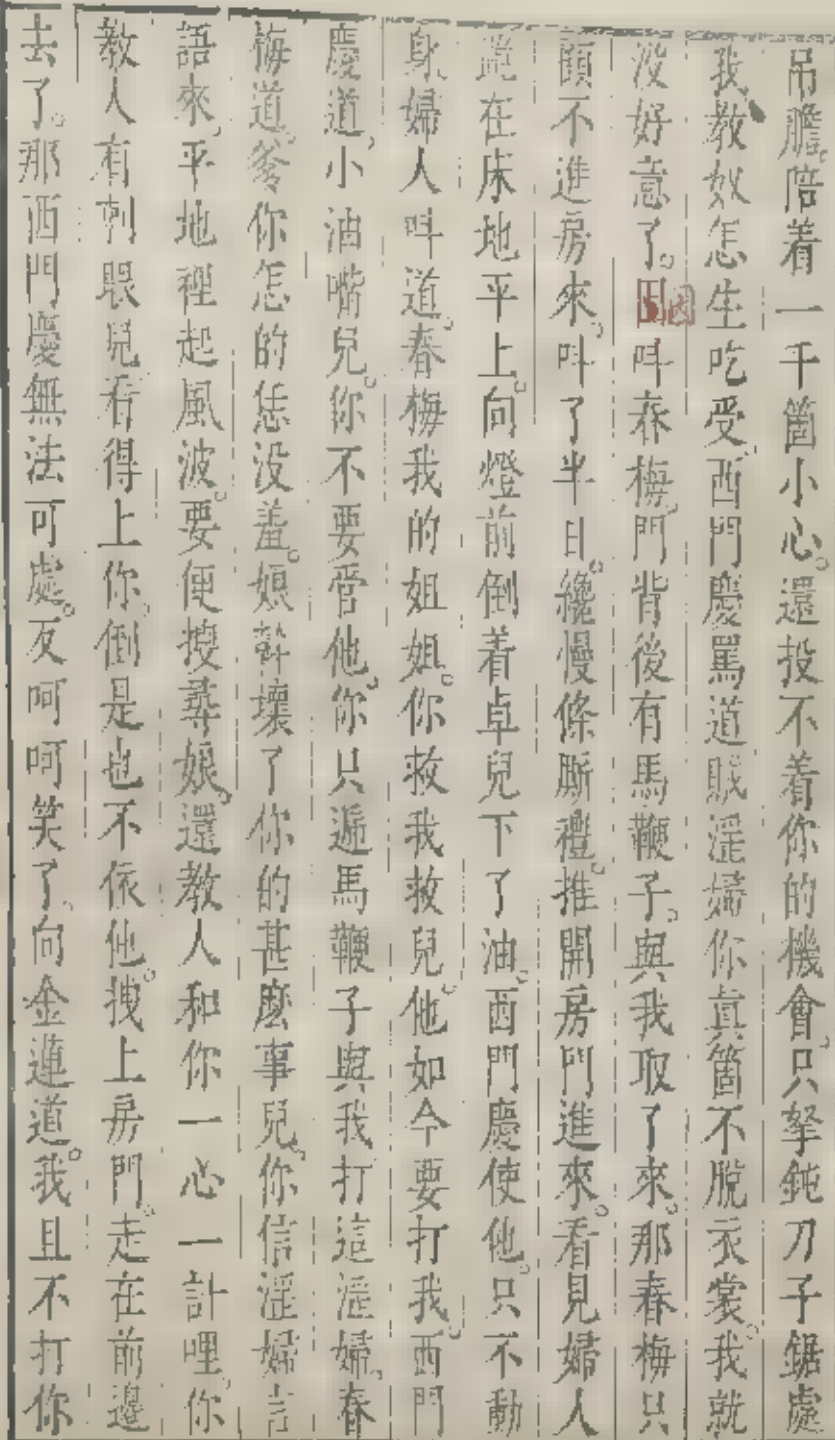 吊膽。陪着一千箇小心。還投不着你的機會。只拏鈍刀子鋸處
我教奴怎生吃受。西門慶罵道賊淫婦你真箇不脫衣裳。我就
没好意了。因叫春梅。門背後有馬鞭子。與我取了來。那春梅只
顧不進房來。叫了半日。纔慢條厮禮。推開房門進來。看見婦人
跪在床地平上。向燈前倒着卓兒下了油。西門慶使他。只不動
身。婦人叫道。春梅我的姐姐。你救我救兒。他如今要打我。西門
慶道。小油嘴兒。你不要管他。你只遞馬鞭子與我打這淫婦。春
梅道。爹你怎的恁没羞。娘幹壞了你的甚麽事兒。你信淫婦言
語來。平地裡起風波。要便搜尋娘。還教人和你一心一計哩。你
教人有刺眼兒看得上你。倒是也不依他。拽上房門。走在前邊
去了。那西門慶無法可處。反呵呵笑了。向金蓮道。我且不打你